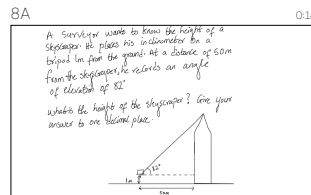 8A
0:1
A Surveyor wants to know the height of a
skyscraper. He places his inclinometer on a
tripod 1m from the ground. At a distance of 50m
from the skyscraper, he records an angle
of elevation of 82°
what is the height of the skyscraper? Give your
answer to one decimal place.
82°
1m
50m